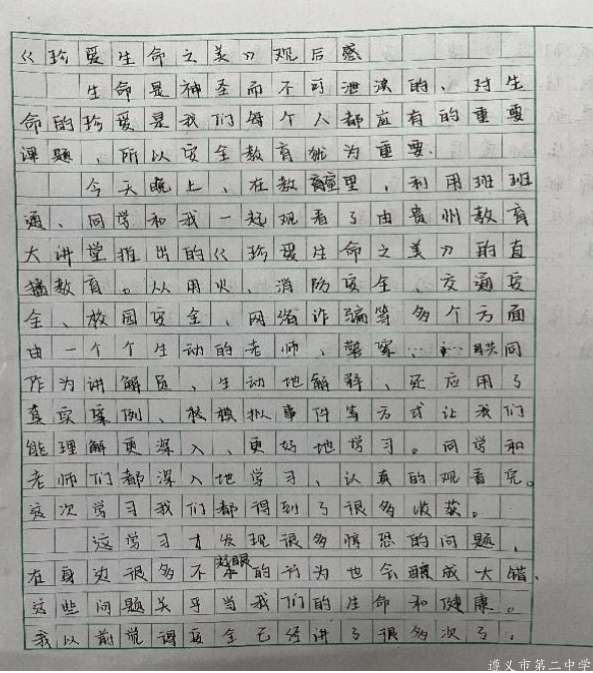 《珍爱生命之美》观后感
生命是神圣而不可泄渎的、对生
命的珍爱是我们每个人都应有的重要
课题，所以安全教育就为重要.
今天晚上，在教室里，利用班班
通、同学和我一起观看了由贵州教育
大讲堂推出的《珍爱生命之美》的直
播教育。从用火、消防安全、交通安
全、校园安全、网络诈骗等多个方面
由一个个生动的老师、警察……共同
作为讲解员，生动地解释、还应用了
真实案例、模拟事件等方式让我们
能理解更深入、更好地学习。同学和
老师们都深入地学习、认真的观看完。
这次学习我们都得到了很多收获。
这学习才发现很多惧恐的问题，
在身边很多不起眼的行为也会酿成大错、
这些问题关乎当我们的生命和健康。
我以前觉得安全已经讲了很多次了，
遵义市第二中学